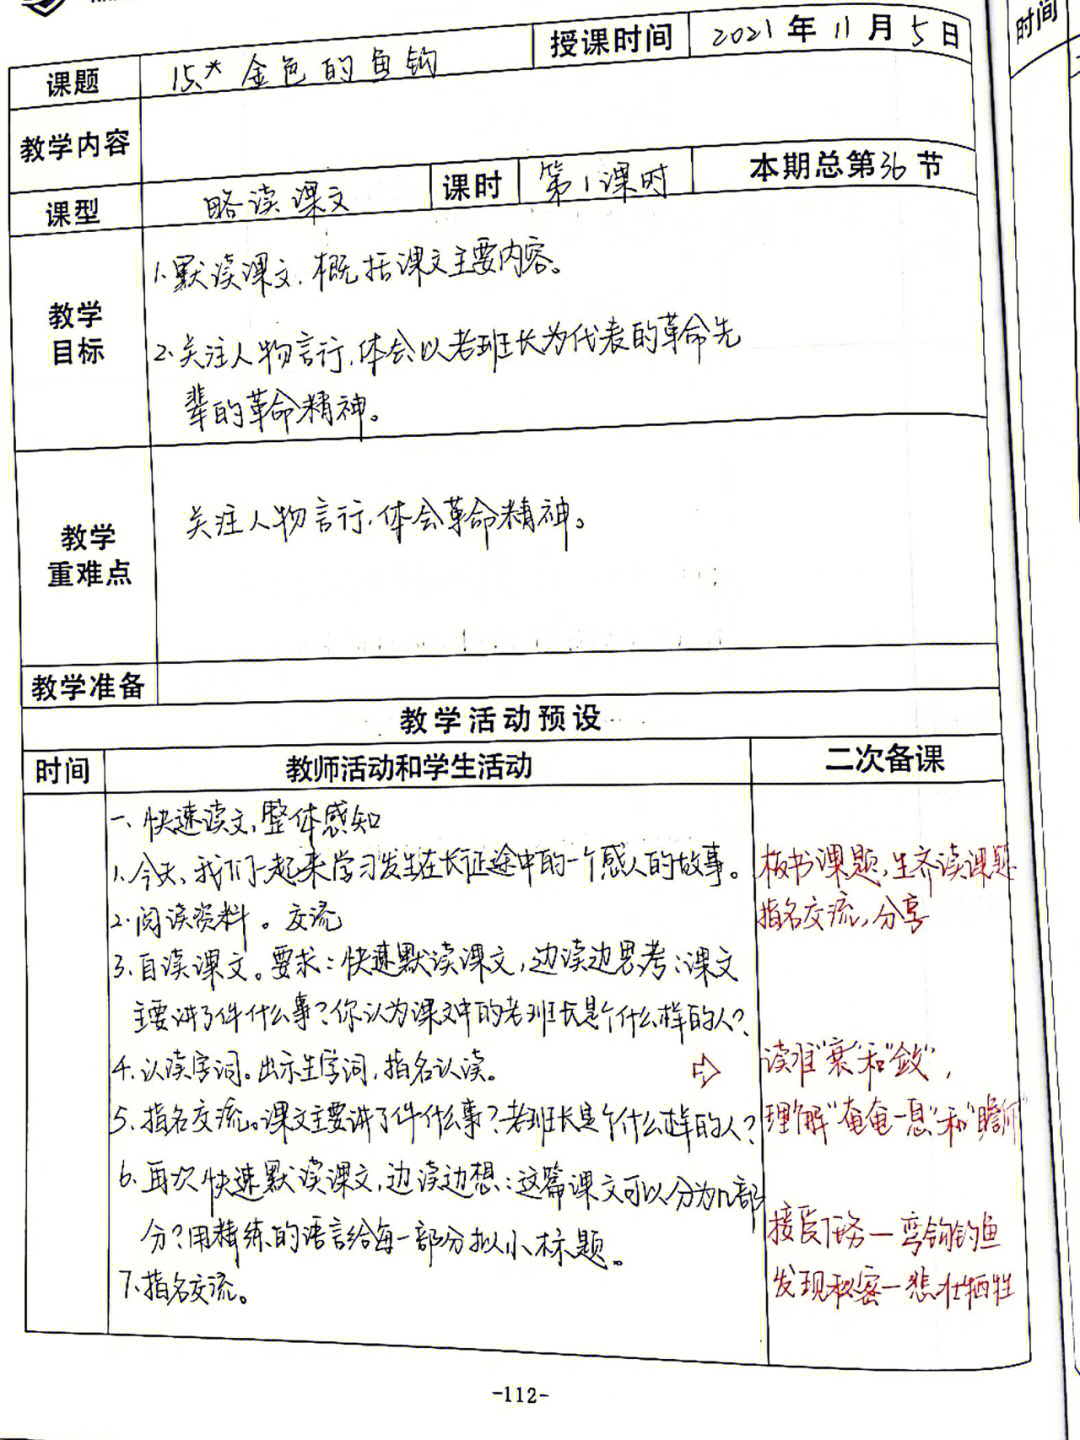 授课时间 2021年11月5日
课题 15* 金色的鱼钩
教学内容
课型 略读课文 课时 第1课时 本期总第36节
教学目标
1.默读课文,概括课文主要内容。
2.关注人物言行,体会以老班长为代表的革命先
辈的革命精神。
教学重难点
关注人物言行,体会革命精神。
教学准备
教学活动预设
时间 教师活动和学生活动 二次备课
一、快速读文,整体感知
1.今天,我们一起来学习发生在长征途中的一个感人的故事。
板书课题,生齐读课题
2.阅读资料。交流
指名交流,分享
3.自读课文。要求:快速默读课文,边读边思考:课文
主要讲了件什么事?你认为课文中的老班长是个什么样的人?
4.认读字词。出示生字词,指名认读。
读准"衰"和"敛",
5.指名交流。课文主要讲了件什么事?老班长是个什么样的人?
理解"奄奄一息"和"瞻仰"
6.再次快速默读课文,边读边想:这篇课文可以分为几部
分?用精练的语言给每一部分拟小标题。
接受任务—弯钩钓鱼
7.指名交流。
发现秘密—悲壮牺牲
-112-
时间